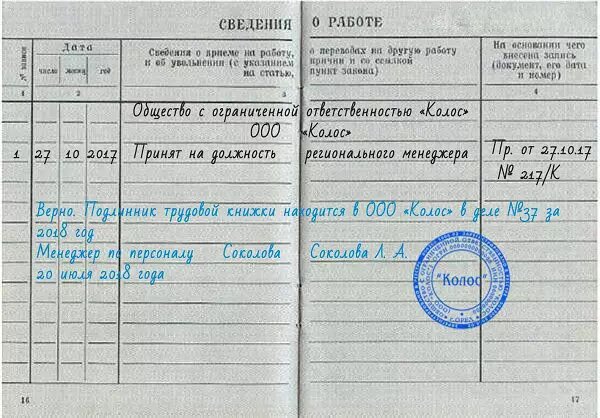 СВЕДЕНИЯ О РАБОТЕ
№ записи
Дата
число месяц год
Сведения о приеме на работу, о переводах на другую работу
и об увольнении (с указанием причин и со ссылкой
на статью, пункт закона)
На основании чего
внесена запись
(документ, его дата
и номер)
1 2 3 4
Общество с ограниченной ответственностью «Колос»
ООО «Колос»
1 27 10 2017 Принят на должность регионального менеджера Пр. от 27.10.17
№ 217/К
Верно. Подлинник трудовой книжки находится в ООО «Колос» в деле №37 за
2018 год
Менеджер по персоналу Соколова Соколова Л. А.
20 июля 2018 года
"Колос"
г.ОРЕЛ
16 17